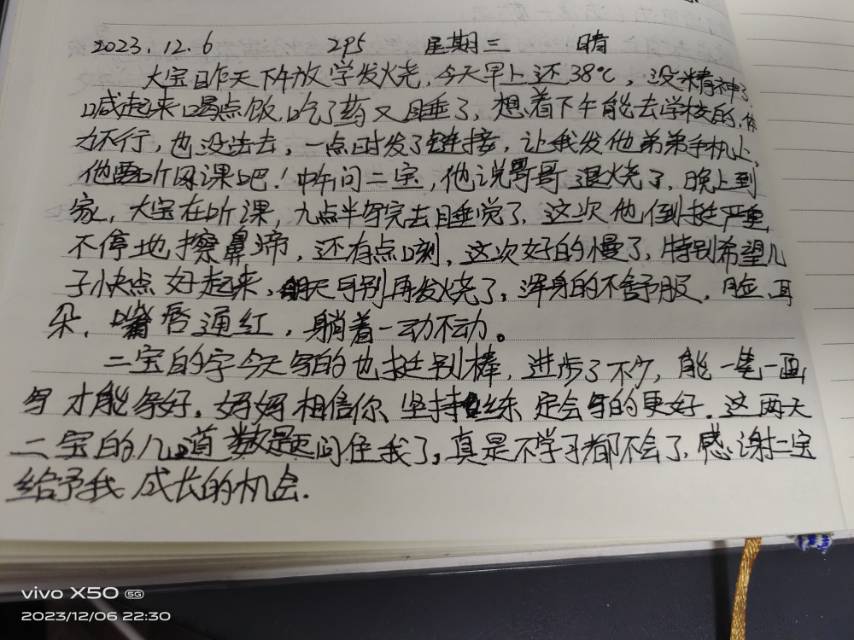 2023.12.6 295 星期三 晴
大宝昨天下午放学发烧,今天早上还38℃,没精神了,
喊起来喝点饭,吃了药又睡了,想着下午能去学校的,体
力不行,也没法去,一点时发了链接,让我发他弟弟手机上,
他要听网课吧!中午问二宝,他说哥哥退烧了,晚上到
家,大宝在听课,九点半写完去睡觉了,这次他倒挺严重
不停地擦鼻涕,还有点咳,这次好的慢了,特别希望儿
子快点好起来,明天可别再发烧了,浑身的不舒服,脸、耳
朵、嘴唇通红,躺着一动不动。
二宝的字今天写的也挺别棒,进步了不少,能一笔一画
写才能写好,妈妈相信你坚持练定会写的更好.这两天
二宝的几道数题问住我了,真是不学习都不会了,感谢二宝
给予我成长的机会.
vivo X50 5G
2023/12/06 22:30